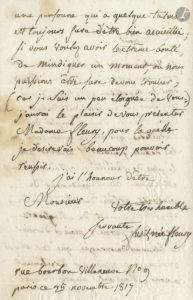 une personne qui a quelque
et toujours sure d'être bien accueillie ;
si vous vouliez avoir l'extrême bonté
de m'indiquer un moment où nous
puissions être sure de vous trouver ;
car je suis un peu éloignée de vous,
j'aurai le plaisir de vous présenter
Madame fleury, pour la
je desirerais beaucoup pouvoir
reussir.
j'ai l'honneur d'être
Monsieur
Votre très humble
Servante
fleury
rue bourbon Villeneuve N°
paris ce 25 novembre 1817